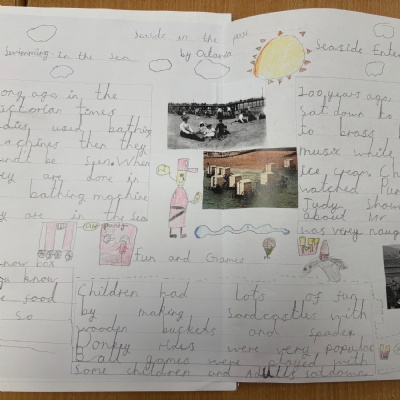 Seaside in the past
by Octavia
Swimming In the Sea
ong ago in the
ictorian times
adies used bathing
achines then they
be seen. When
ey are done in
bathing machine
y are in the sea
Seaside Ente
100 years ago
sat down to
to brass
music while
ice cream. Ch
watched Pun
Judy show
about Mr
was very naug
Fun and Games
now
u know
e food
so
Children had lots of fun
by making Sandcastles with
wooden buckets and spades
Donkey rides were very popular
Ball games were played with
Some children and Adults sat down